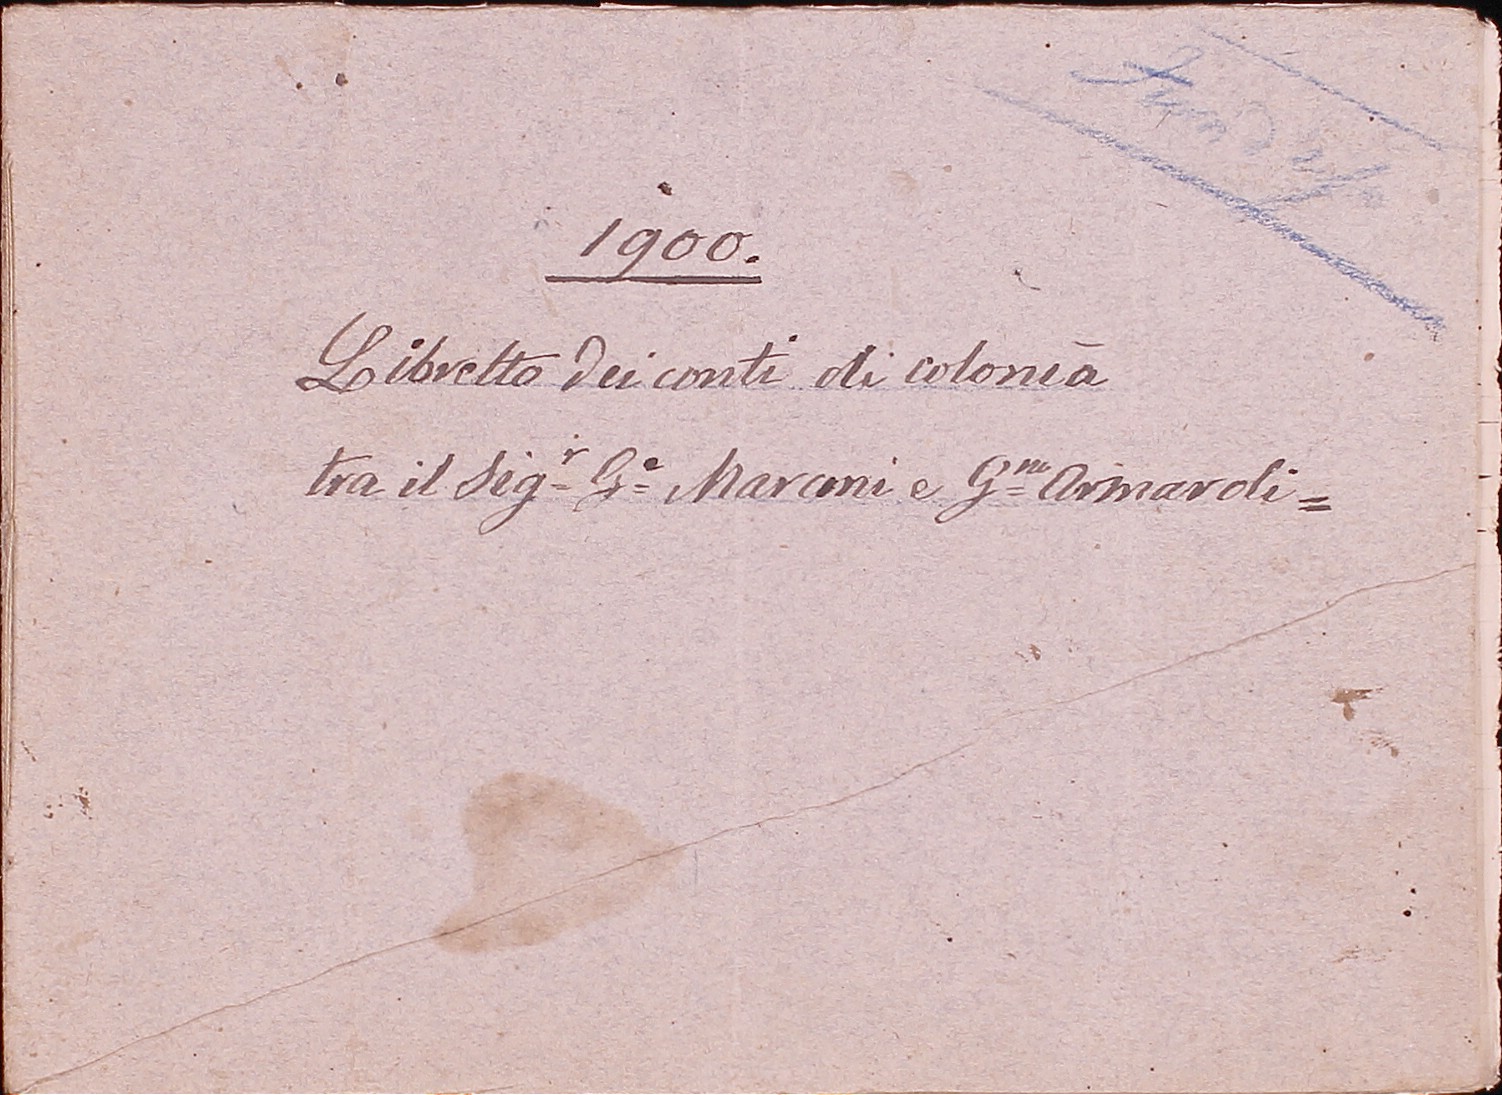 1900.
Libretto dei conti di colonìa
tra il Sig.r G.e Marani e G.m Armaroli =